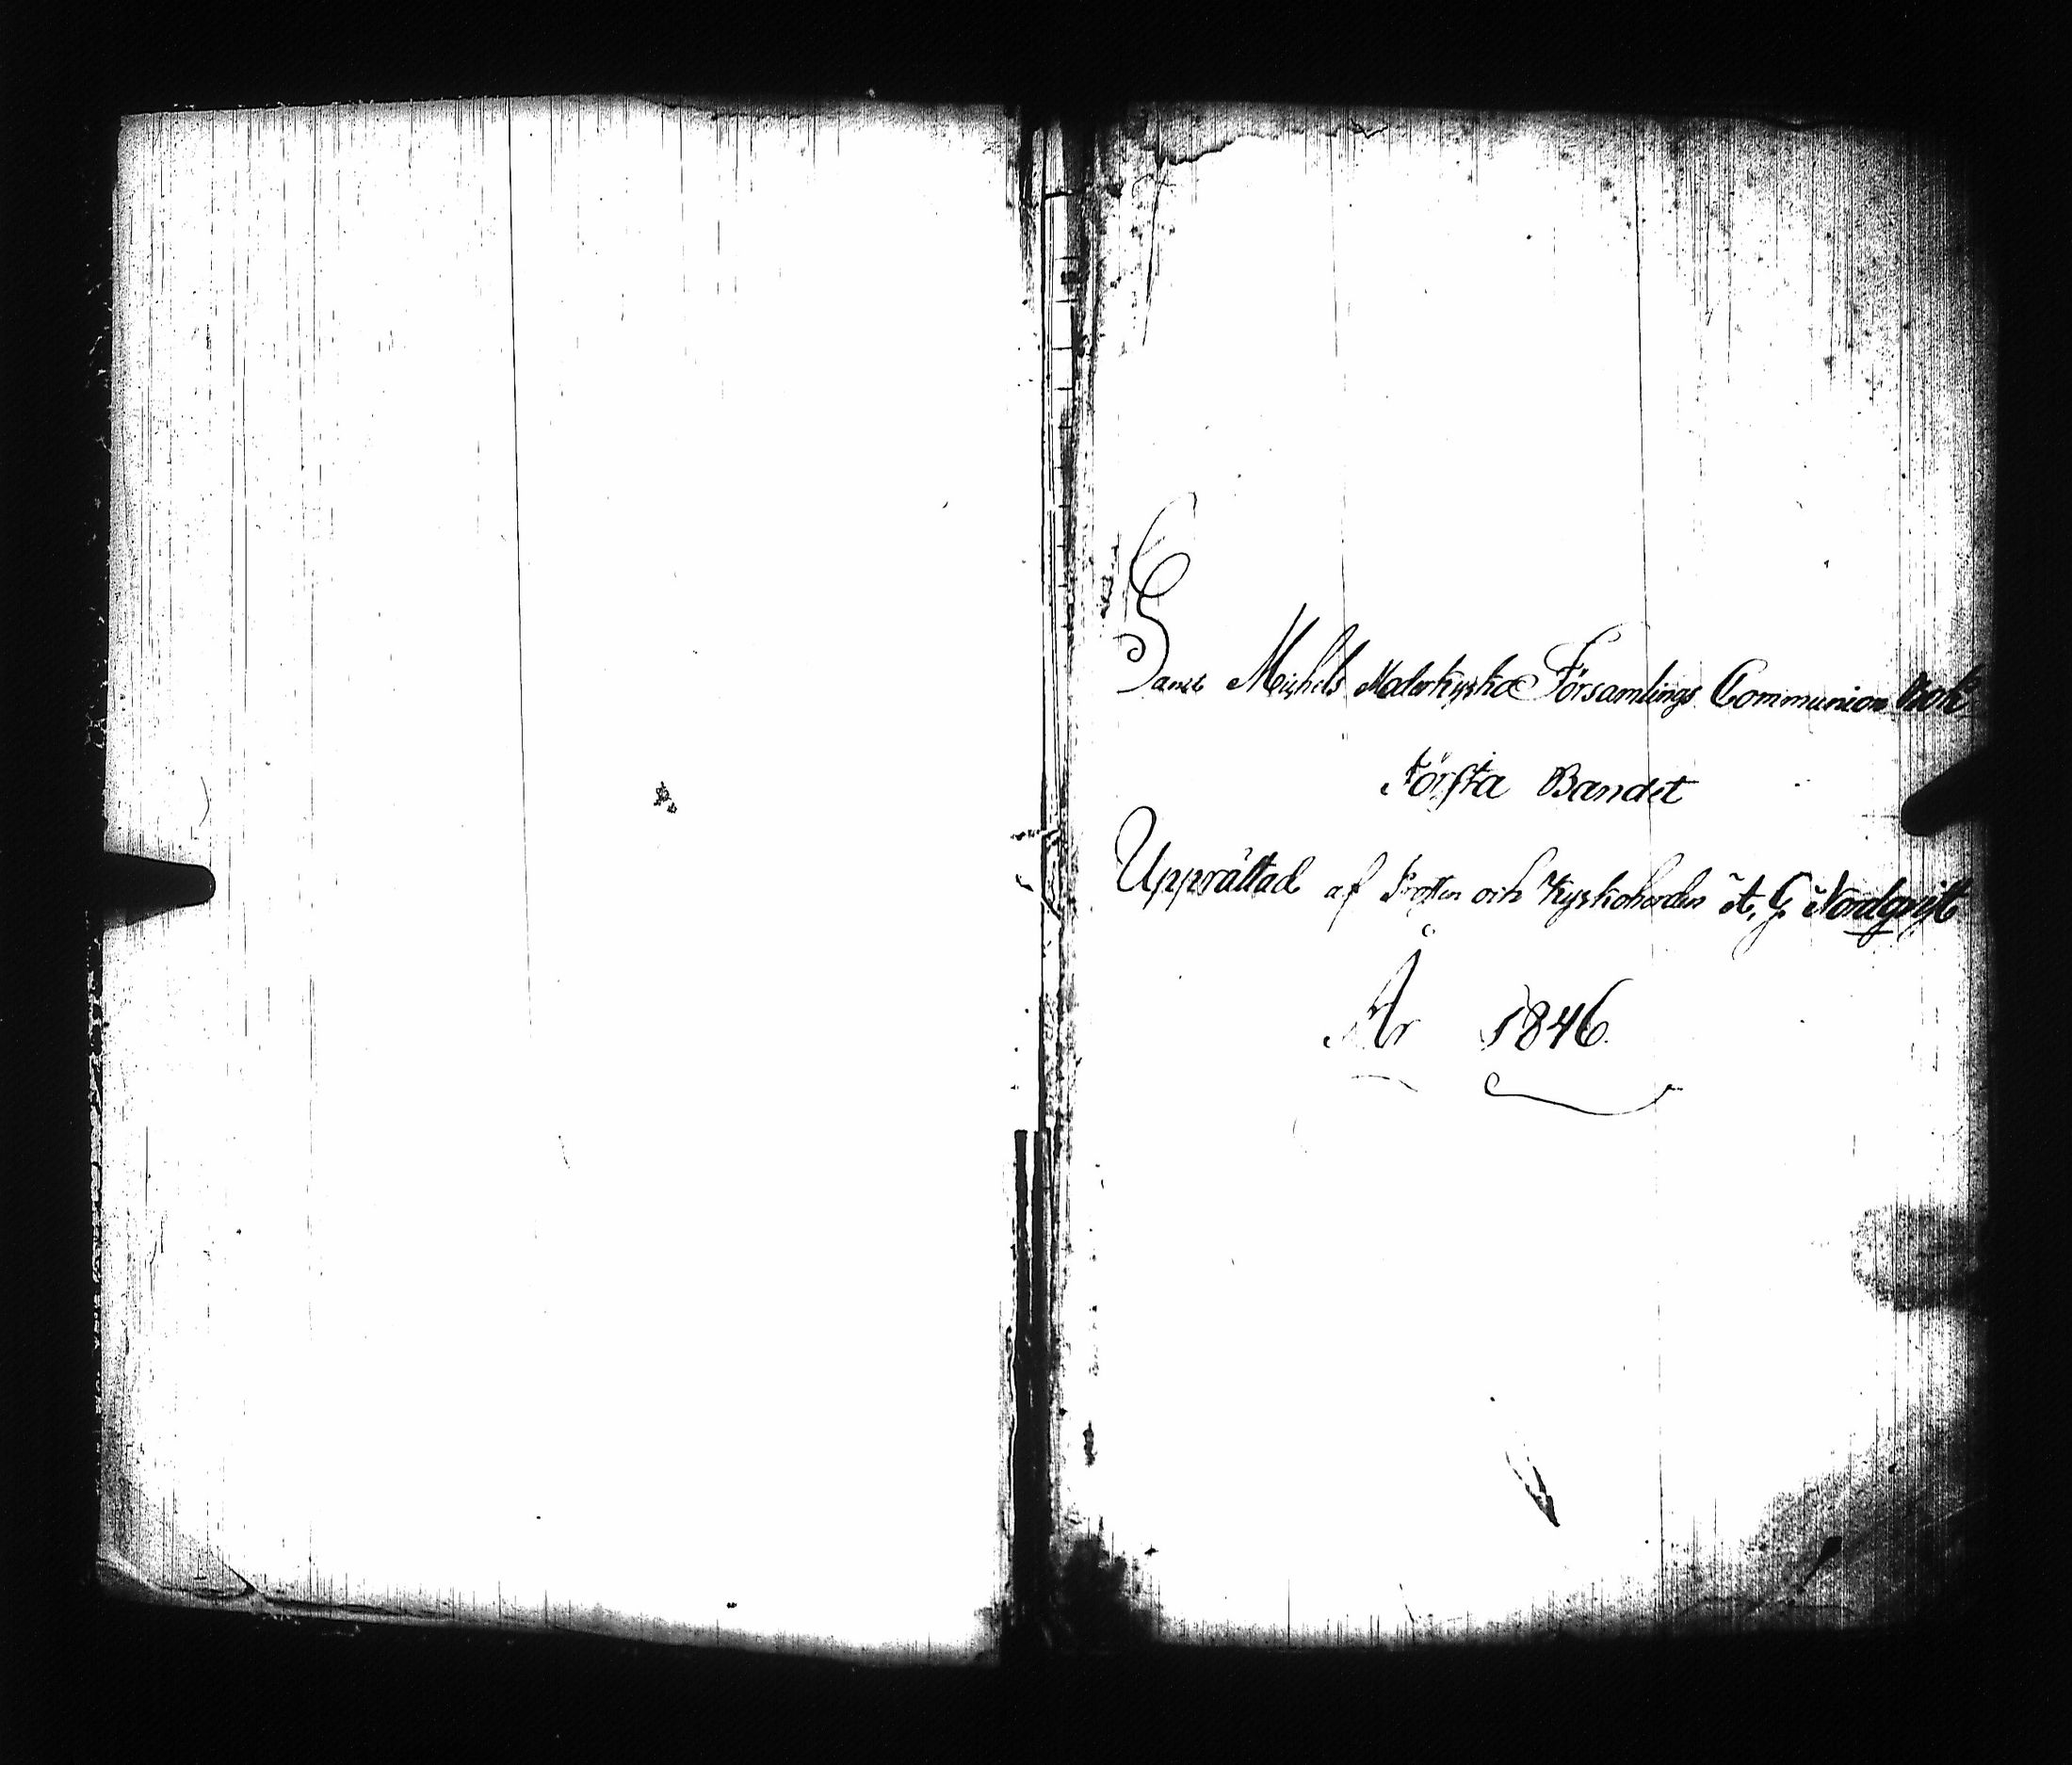 Sanct Michels Moderkyrko Församlings Communion Bok
Första Bandet
Upprättad af Prosten och Kyrkoherden A. G. Nordqvist
År 1846.